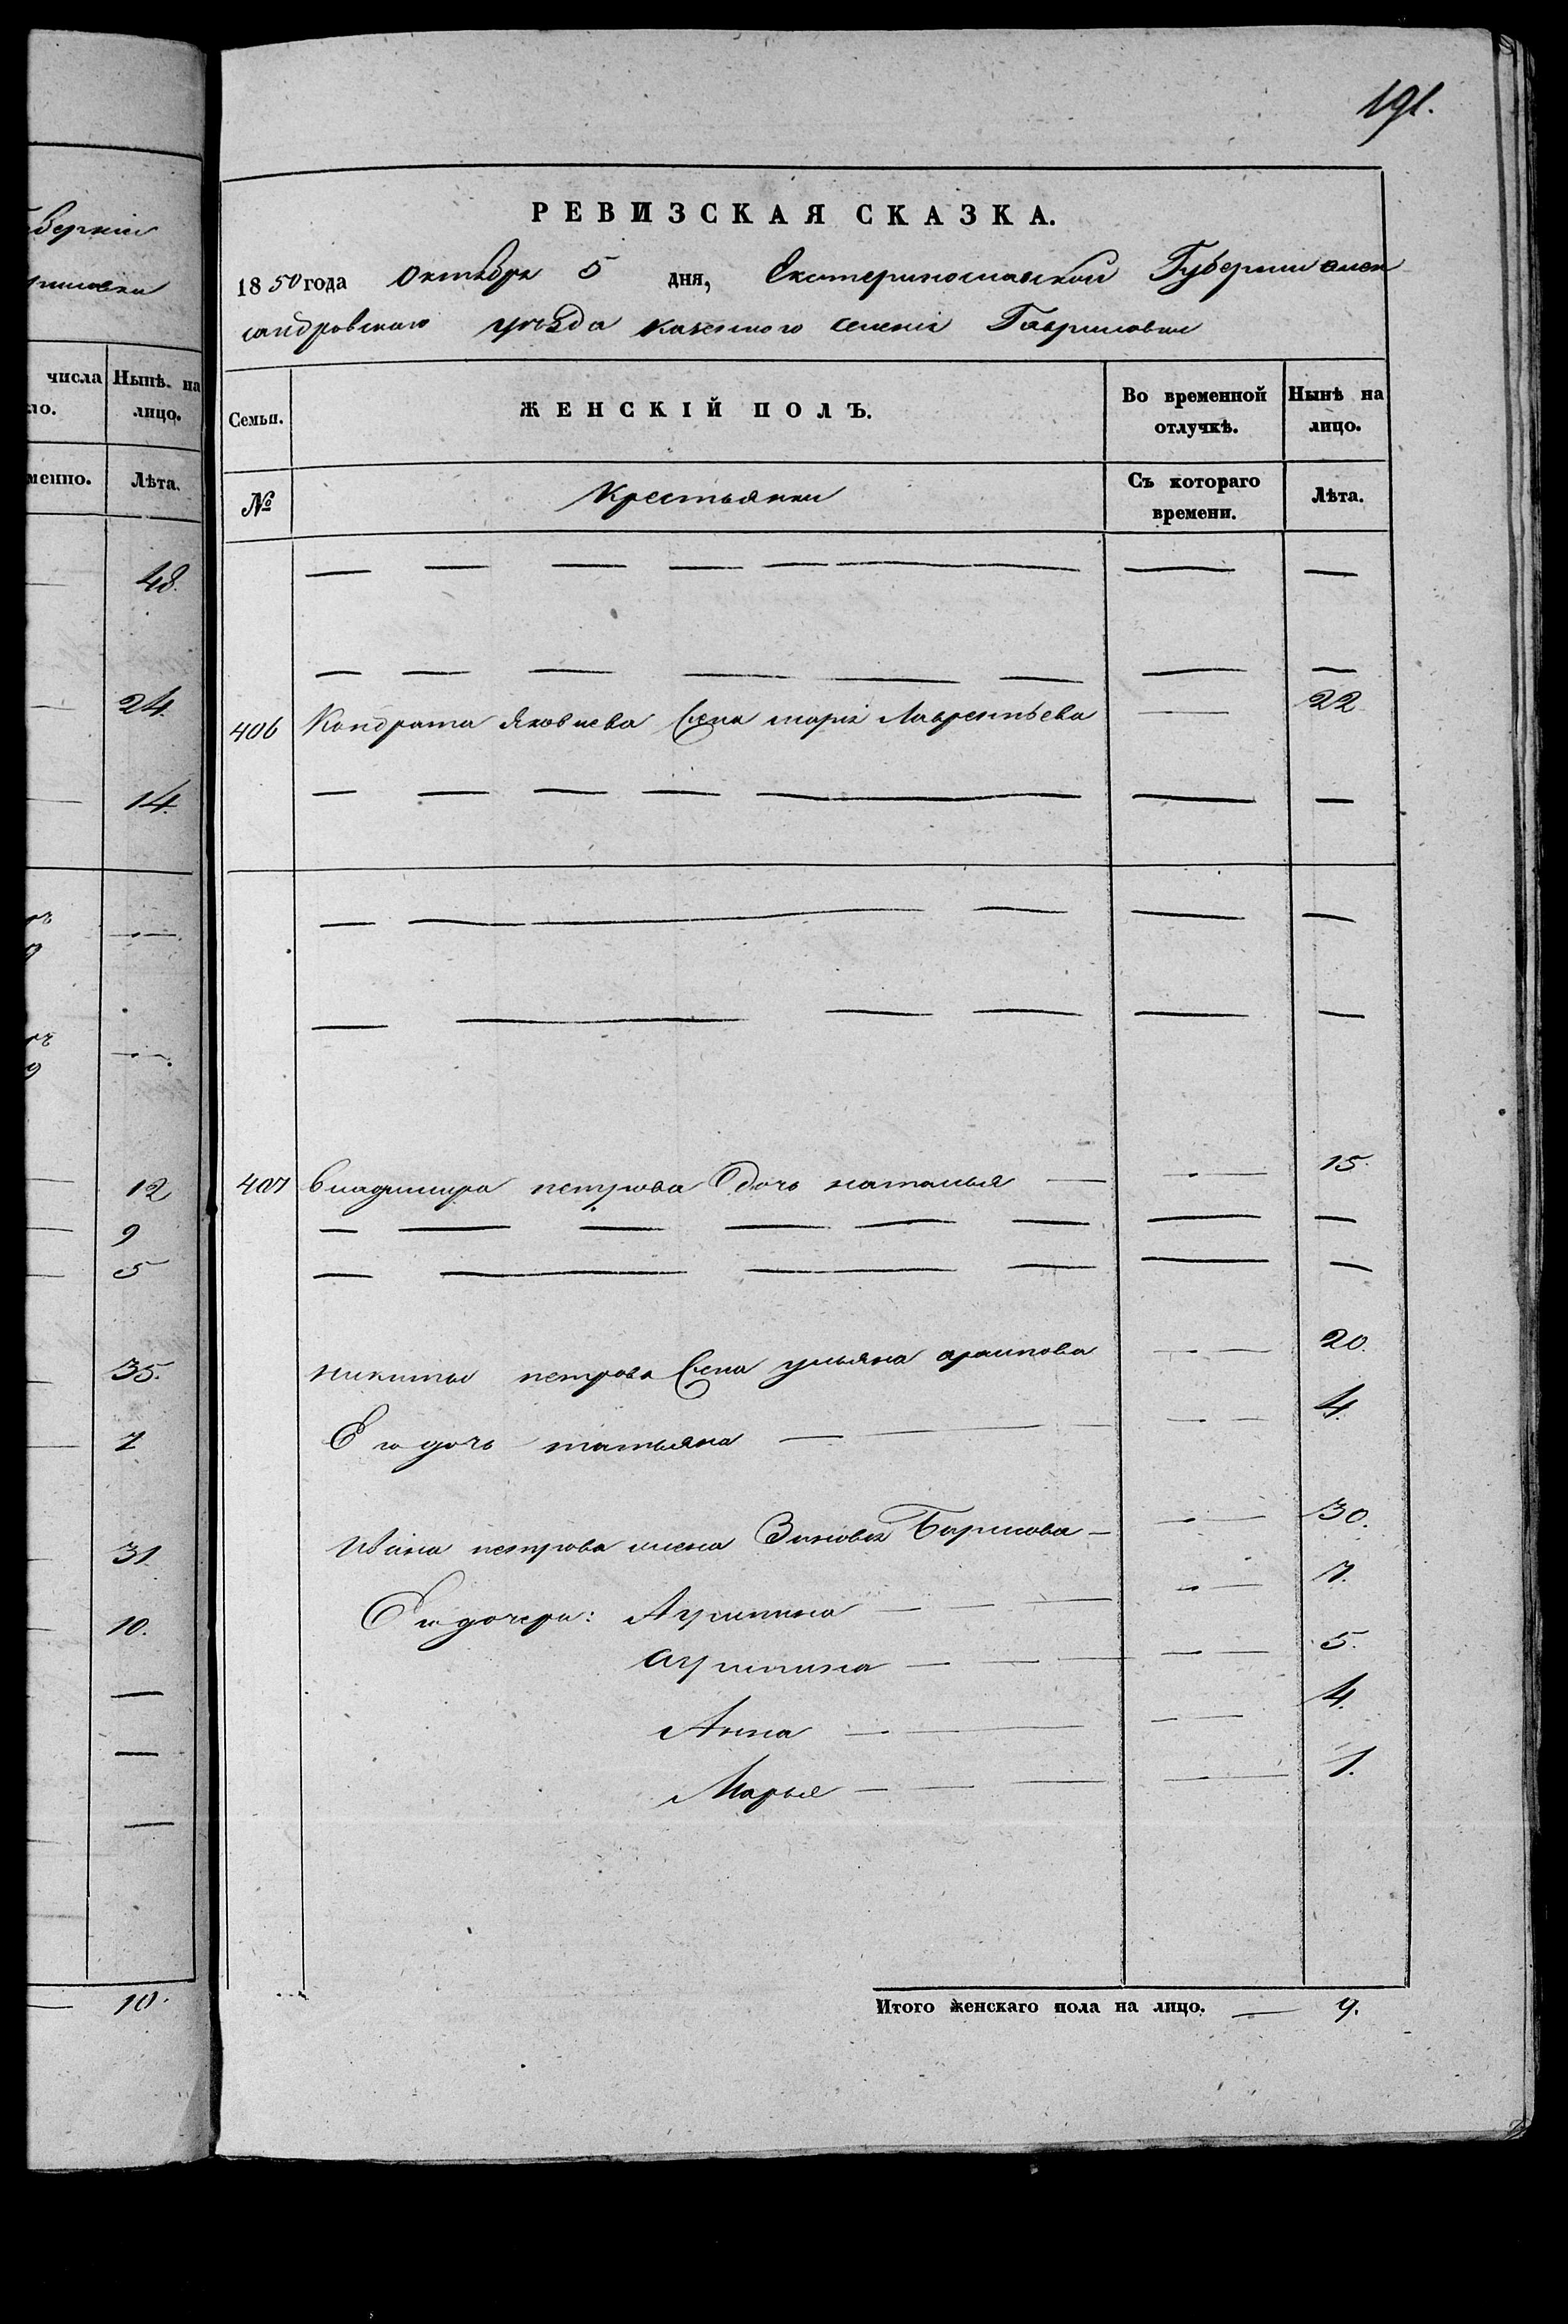 верніи
числа Нынѣ на
ло. лицо.
менно. Лѣта.
48.
24.
14.
12
9
5
35.
7
31
10.
10.
191.
РЕВИЗСКАЯ СКАЗКА.
1850 года Октября 5 дня, Екатеринославской Губерніи алек
сандровскаго уѣзда казенного селенія Гавриловки
Семьи. ЖЕНСКІЙ ПОЛЪ. Во временной отлучкѣ. Нынѣ на лицо.
№ Крестьянки Съ котораго времени. Лѣта.
406 Кондрата Яковлева жена марія Лаврентьева — 22
407 владимира петрова дочь наталья — 15.
никиты петрова жена ульяна — 20.
Его дочь татьяна — 4.
Ивана петрова жена Зиновья Борисова — 30.
Его дочери: Агрипина — 7.
агрипина — 5.
Анна — 4.
Марья — 1.
Итого женскаго пола на лицо. — 9.